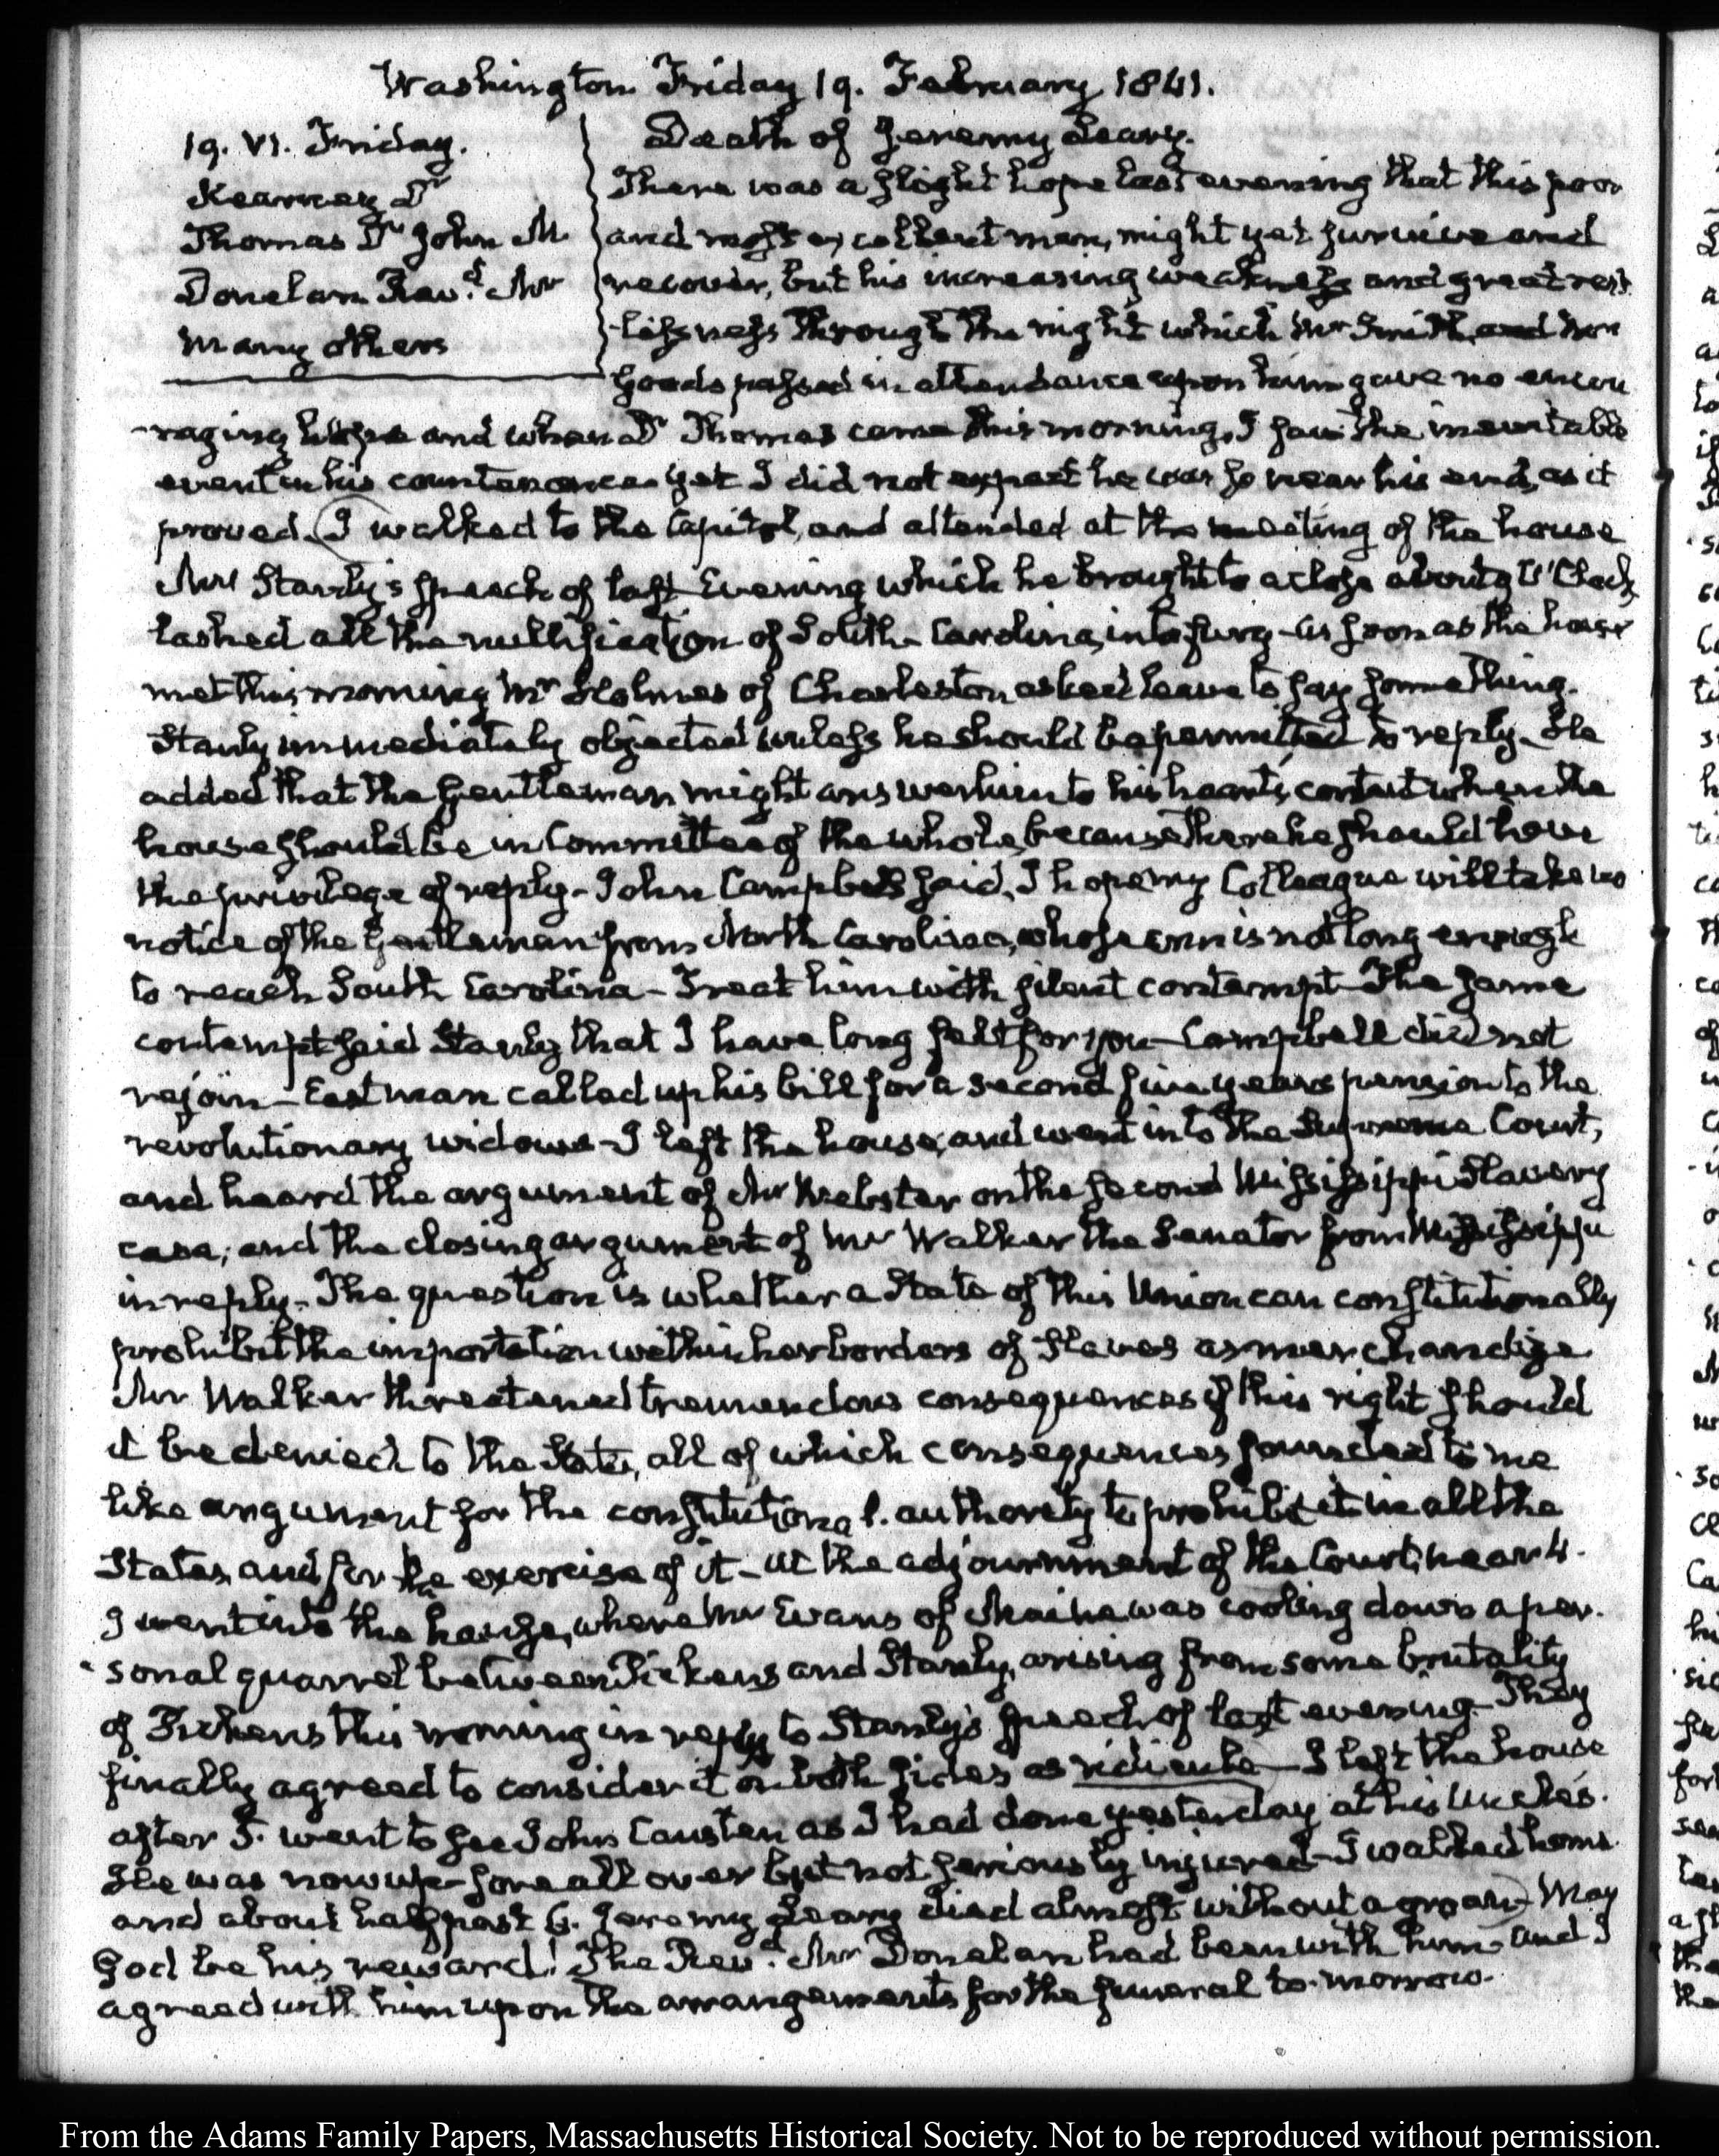 Washington Friday 19. February 1841.
19. VI. Friday.
Kearney Dr
Thomas Dr John M
Donelan Revd. Mr
Many others
Death of Jeremy Leary.
There was a slight hope last evening that this poor
and most excellent man, might yet survive and
recover, but his increasing weakness and great rest
-lessness through the night which Mr Smith and
Goods passed in attendance upon him gave no encou
-raging hope and when Dr Thomas came this morning, I saw the inevitable
event in his countenance yet I did not expect he was so near his end, as it
proved. I walked to the Capitol, and attended at the meeting of the house
Mr Stanly's speech of last Evening which he brought to a close about 9 O'Clock,
lashed all the nullification of South-Carolina, into fury - As soon as the house
met this morning Mr Holmes of Charleston asked leave to say something.
Stanly immediately objected unless he should be permitted to reply. He
added that the Gentleman might answer him to his heart's content when the
house should be in Committee of the whole, because there he should have
the privilege of reply - John Campbell said, I hope my Colleague will take no
notice of the Gentleman from North Carolina, whose arm is not long enough
to reach South Carolina - Treat him with silent contempt - The same
contempt said Stanly that I have long felt for you - Campbell did not
rejoin - Eastman called up his bill for a second five years pension to the
revolutionary widows - I left the house, and went into the Supreme Court,
and heard the argument of Mr Webster on the second Mississippi Slavery
case; and the closing argument of Mr Walker the Senator from Mississippi
in reply. The question is whether a State of this Union can constitutionally
prohibit the importation within her borders of slaves as merchandize
Mr Walker threatened tremendous consequences if this right should
it be denied to the State, all of which consequences sounded to me
like argument for the constitutional authority to prohibit it in all the
States, and for the exercise of it - At the adjournment of the Court, near 4.
I went into the house, where Mr Evans of Maine was cooling down a per-
sonal quarrel between Pickens and Stanly, arising from some brutality
of Pickens this morning in reply to Stanly's speech of last evening. They
finally agreed to consider it on both sides as ridicule - I left the house
after 5. went to see John Causten as I had done yesterday at his Uncle's.
He was now up - sore all over but not seriously injured - I walked home
and about half past 6. Jeremy Leary died almost without a groan - May
God be his reward! The Revd. Mr Donelan had been with him - and I
agreed with him upon the arrangements for the funeral to-morrow.
From the Adams Family Papers, Massachusetts Historical Society. Not to be reproduced without permission.